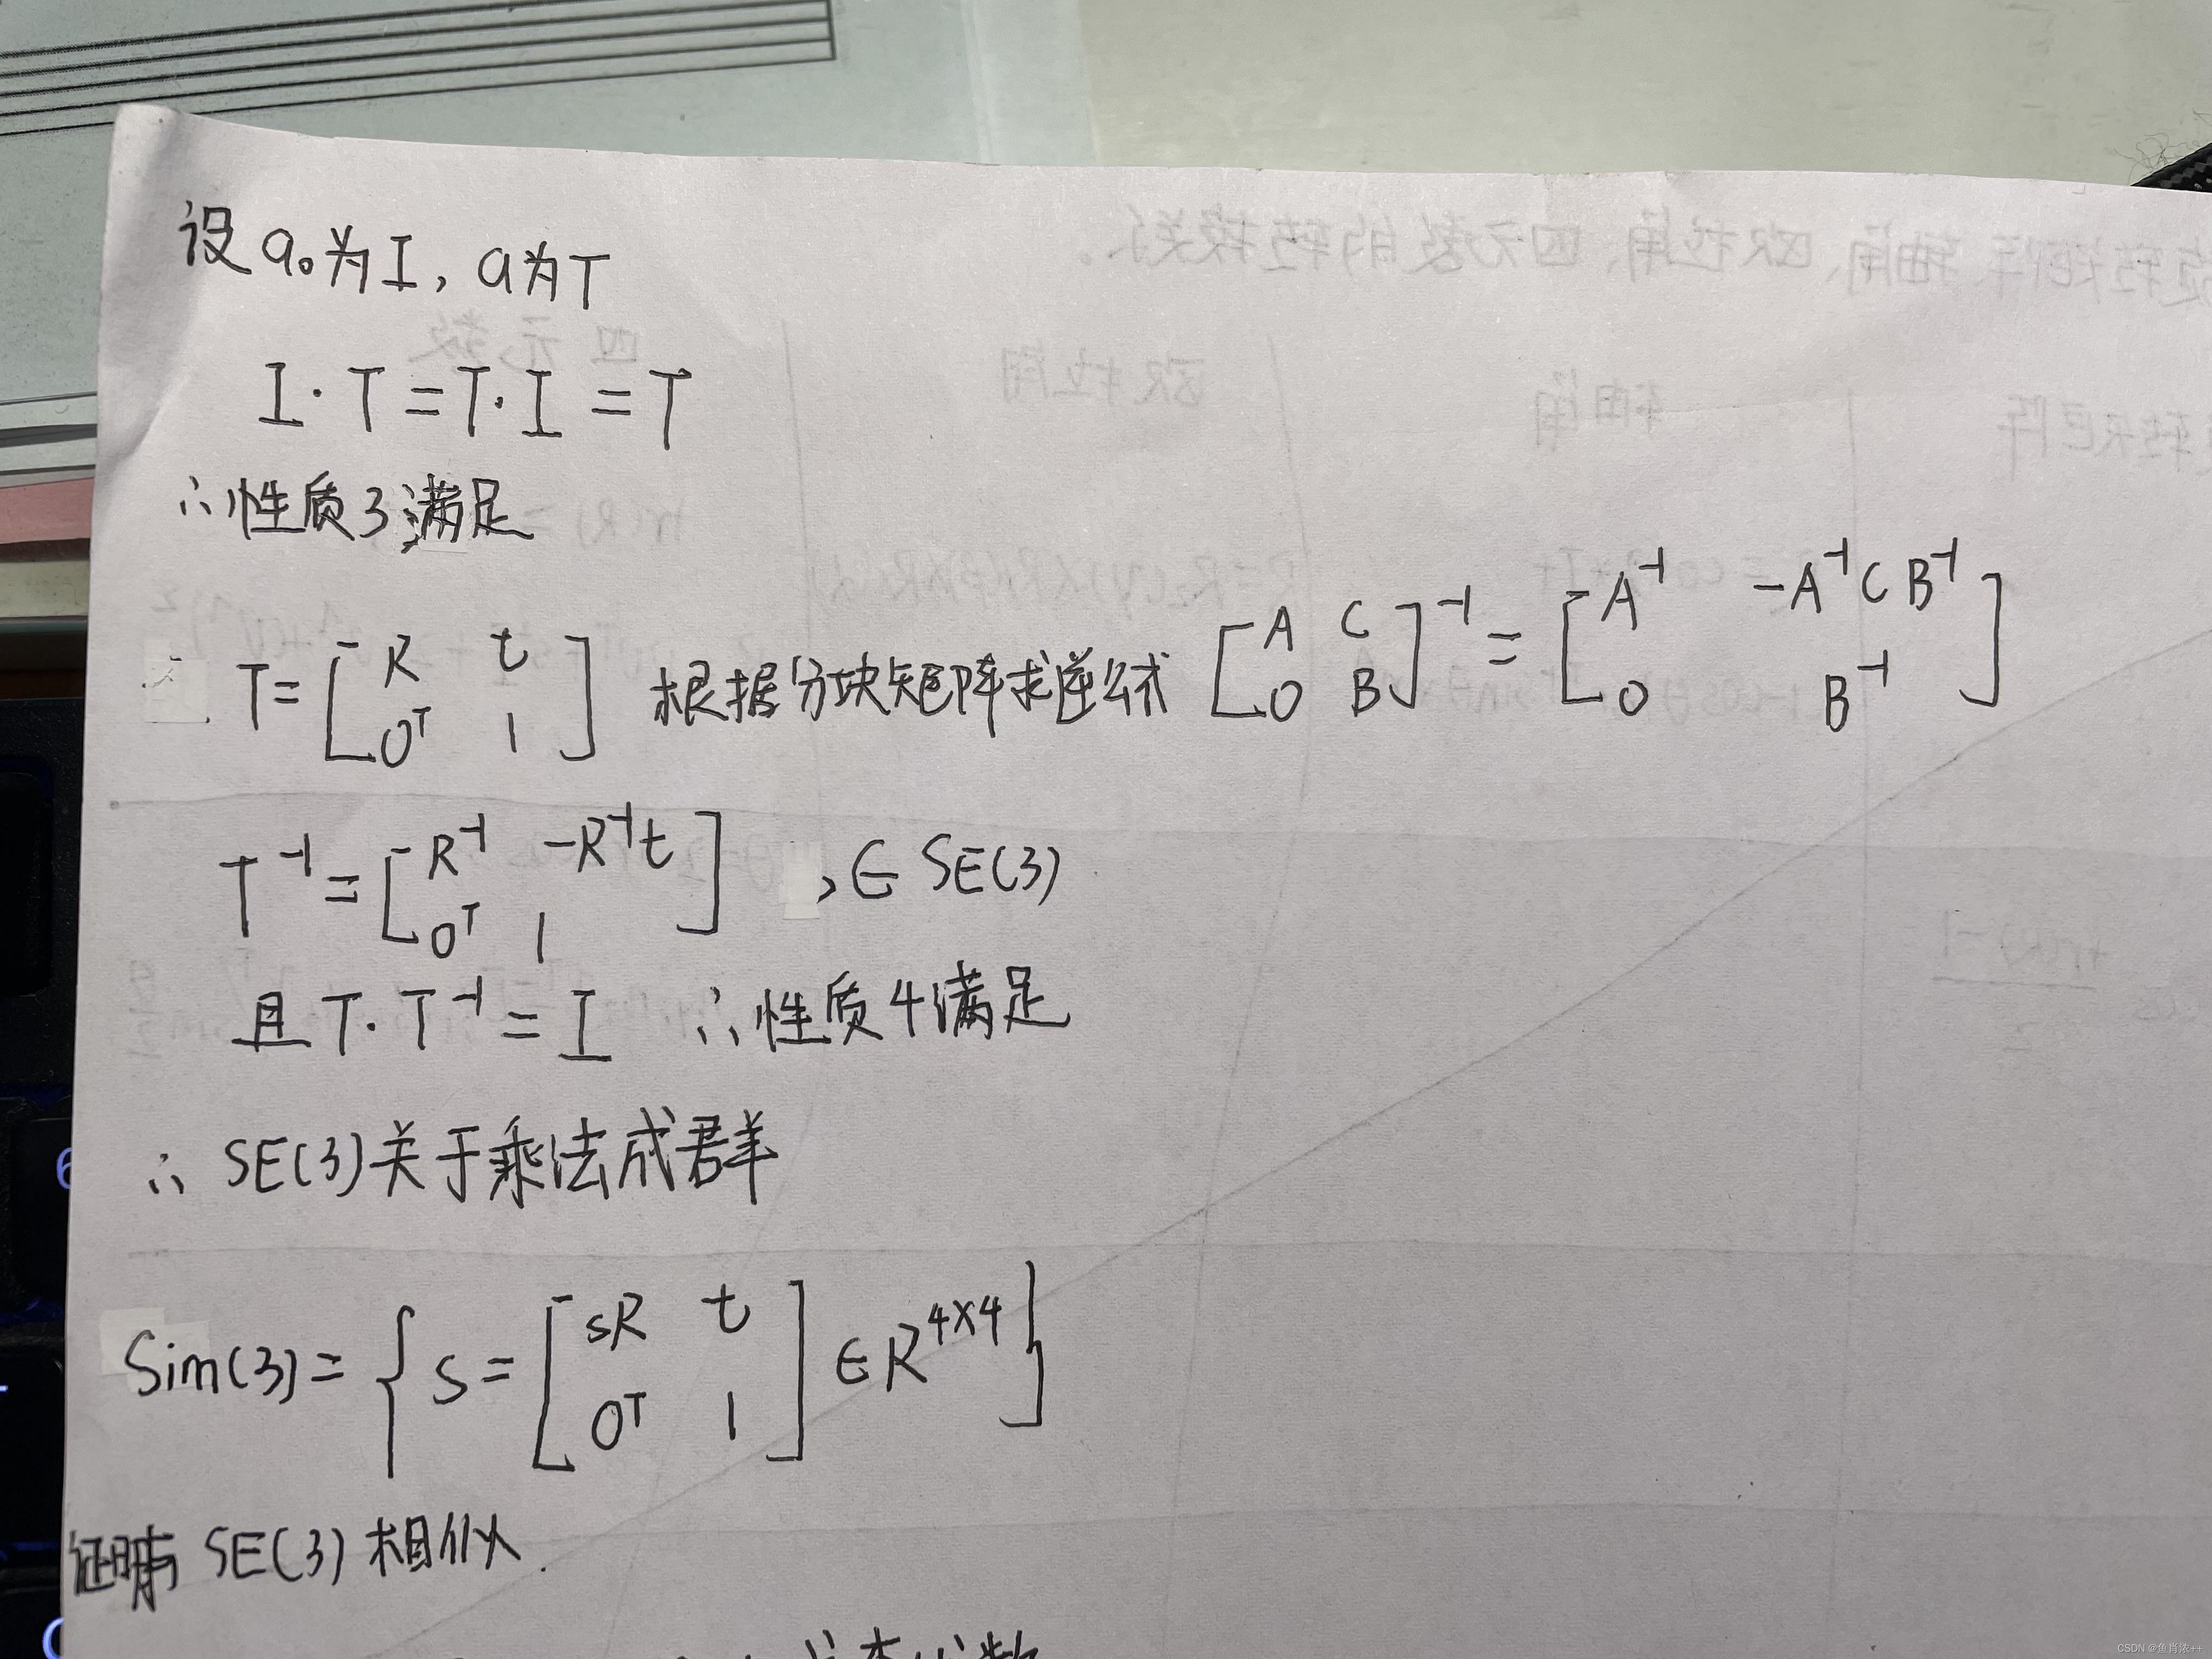 设 a₀ 为 I, a 为 T
I · T = T · I = T
∴ 性质3满足
T = [ R t ; 0ᵀ 1 ] 根据分块矩阵求逆公式 [ A C ; 0 B ]⁻¹ = [ A⁻¹ -A⁻¹CB⁻¹ ; 0 B⁻¹ ]
T⁻¹ = [ R⁻¹ -R⁻¹t ; 0ᵀ 1 ] , ∈ SE(3)
且 T · T⁻¹ = I ∴ 性质4满足
∴ SE(3)关于乘法成群
Sim(3) = { S = [ sR t ; 0ᵀ 1 ] ∈ R⁴ˣ⁴ }
SE(3) 相似.
CSDN @鱼肖浓++